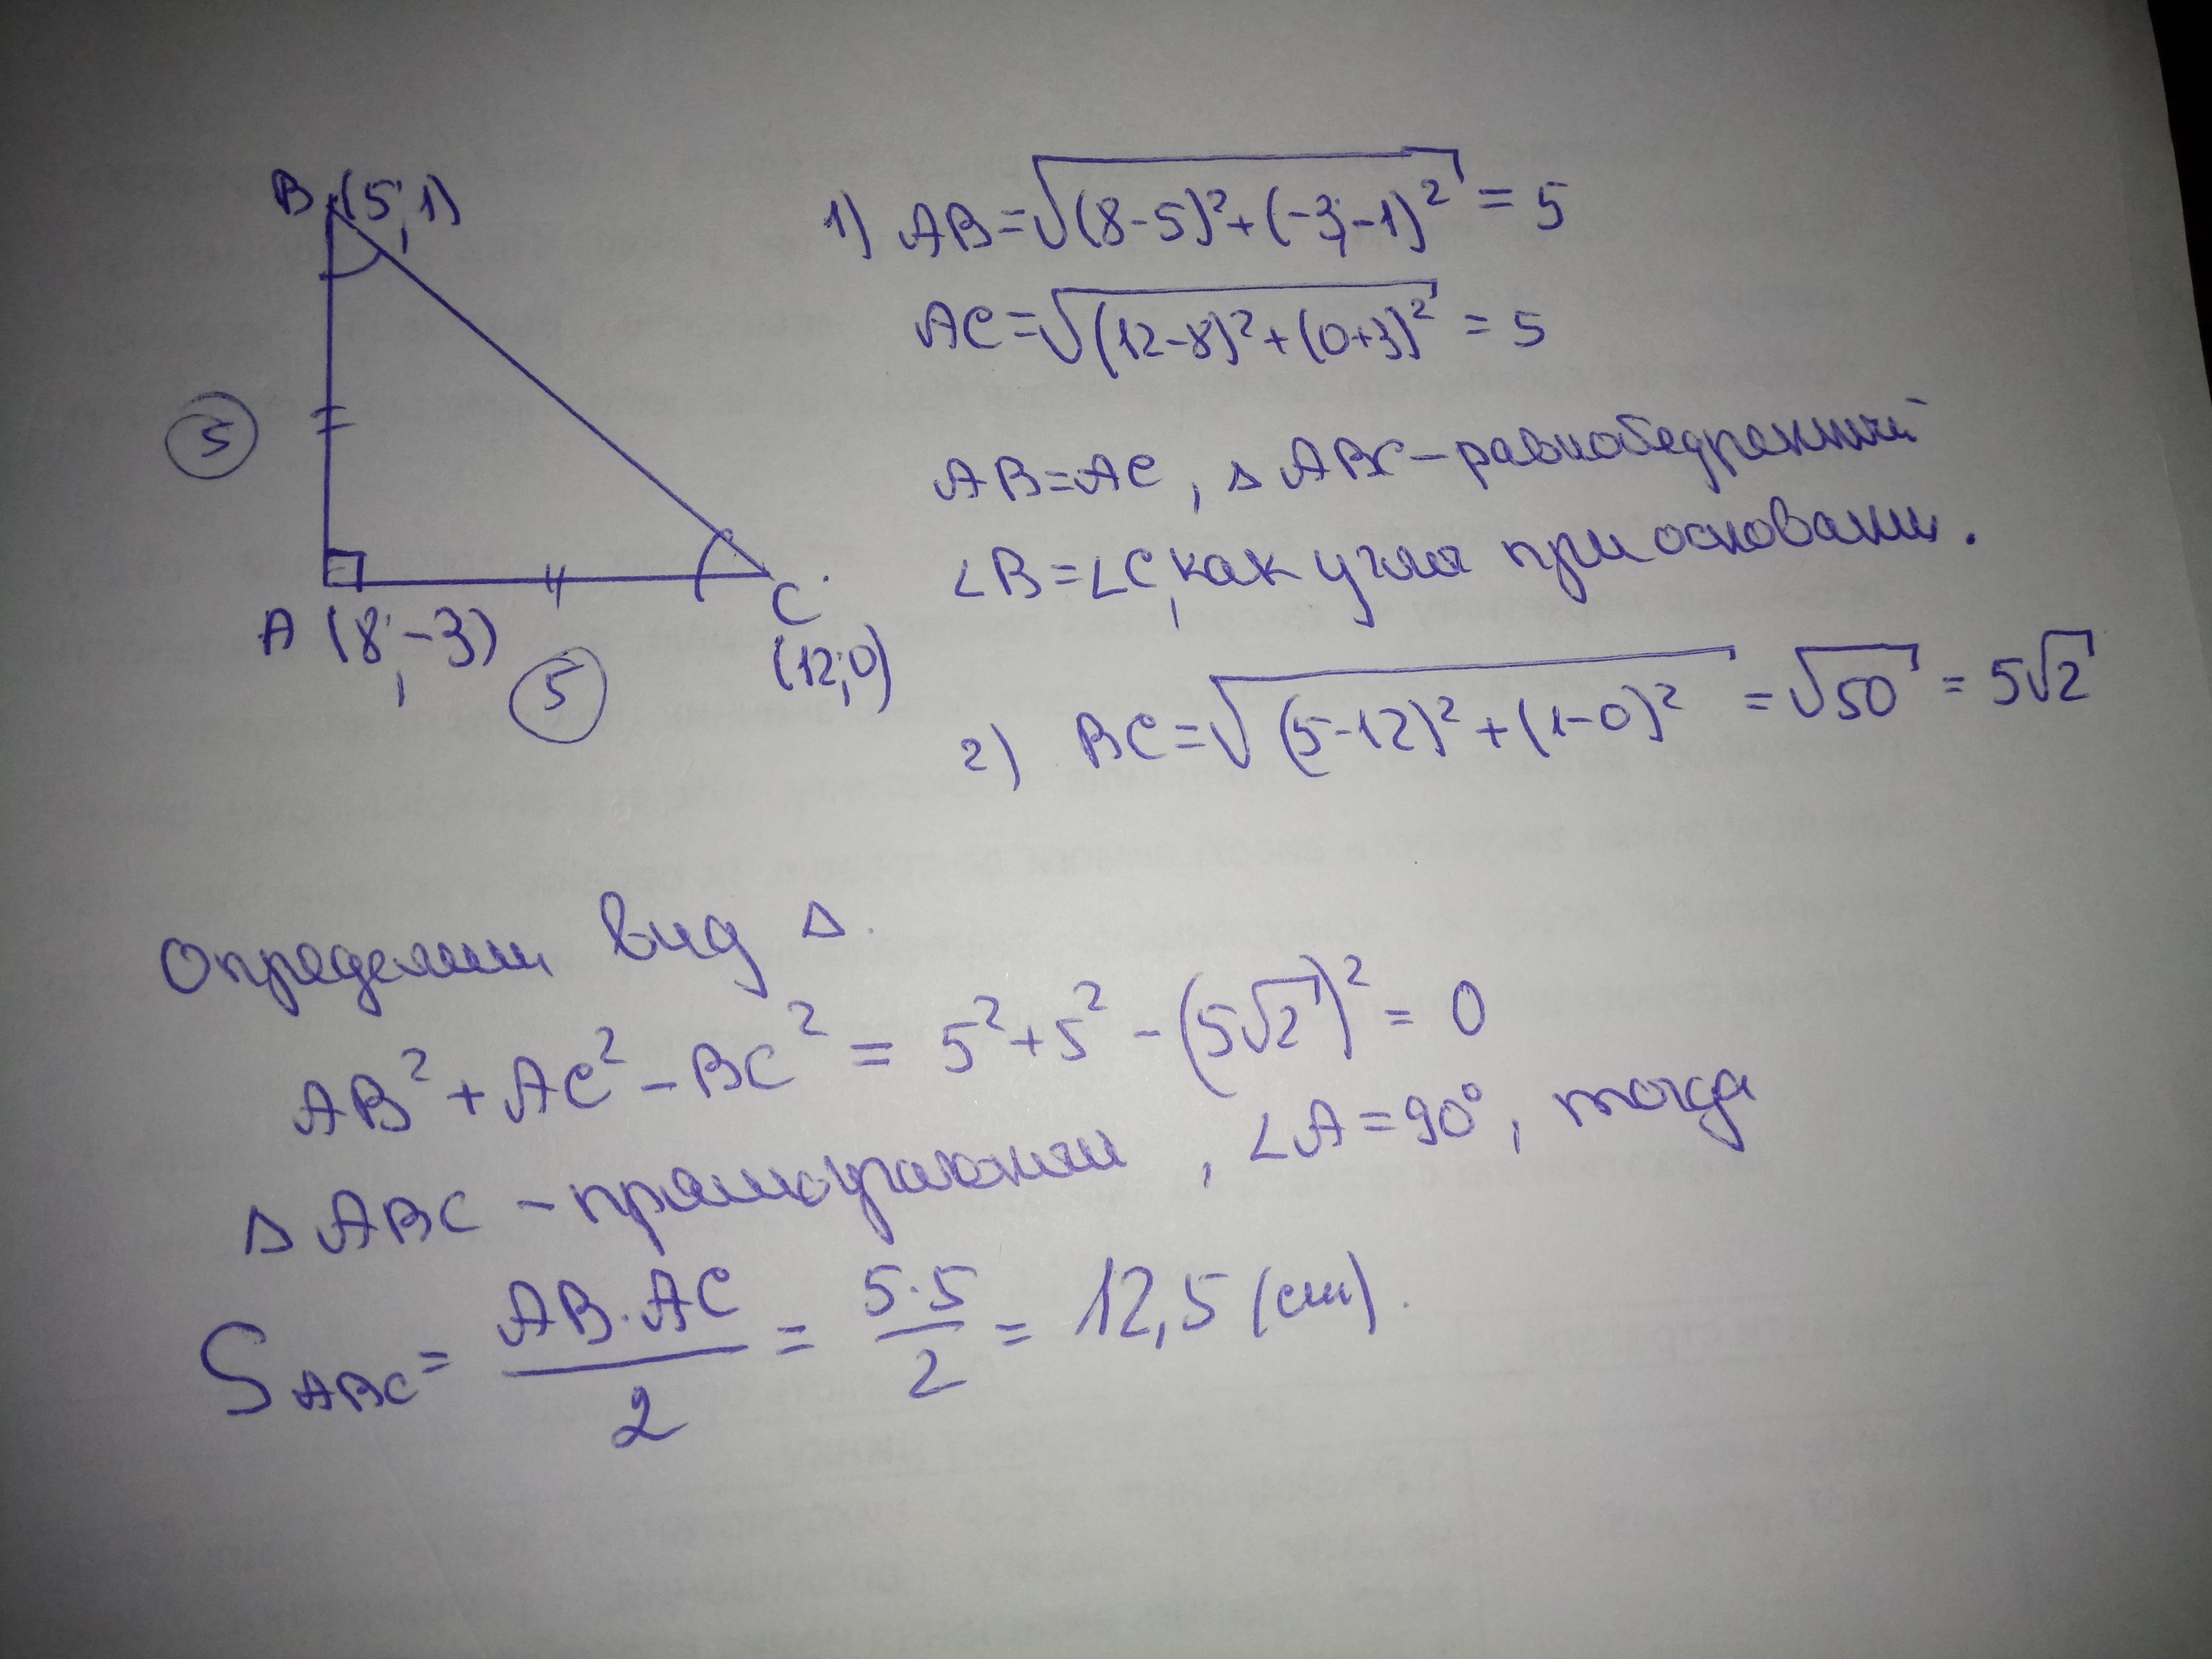 B(5;1)
1) AB=√(8-5)²+(-3-1)² = 5
AC=√(12-8)²+(0+3)² = 5
5
AB=AC, △ABC-равнобедренный
∠B=∠C, как углы при основании.
A (8;-3)
C
(12;0)
5
2) BC=√(5-12)²+(1-0)² = √50 = 5√2
Определим вид △.
AB²+AC²-BC² = 5²+5²-(5√2)² = 0
△ABC-прямоугольный, ∠A=90°, тогда
S ABC = AB·AC/2 = 5·5/2 = 12,5 (см).